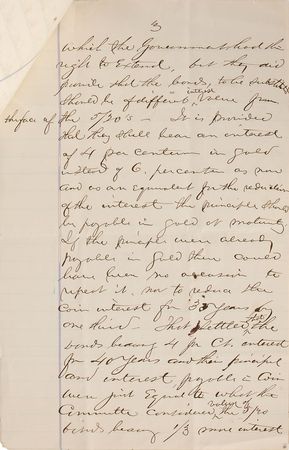 3
which the Government had the
right to Extend, but they did
provide that the bonds, to be substituted
should be of different interest from
the face of
the 5/20's – It is provided
that they shall bear an interest
of 4 per centum in gold
instead of 6. per centum as now
and as an Equivalent for the reduction
of the interest the principle should
be payable in gold at maturity
If the principle were already
payable in Gold there could
have been no occasion to
repeat it. nor to reduce the
Coin interest for years by
one third. That settled the
bonds bearing 4 per Ct. interest
for 40 years and their principal
and interest payable in Coin
were just Equal to what the
Committee considered the value of 5/20
bonds bearing 1/3 more interest